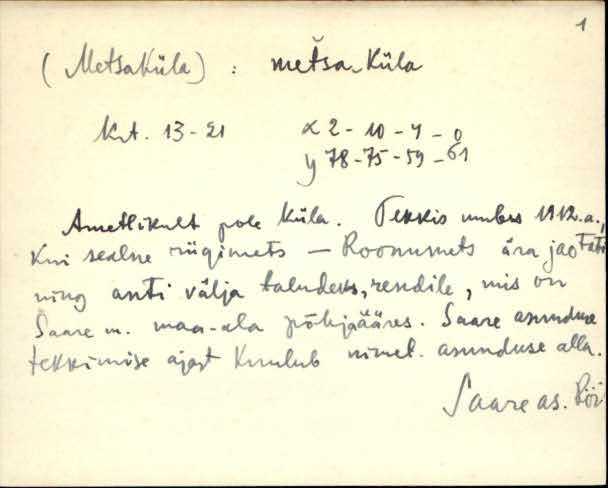 1
(Metsaküla) : met̆sa-küla
Krt. 13-21 x 2 - 10 - 4 - 0
y 78 - 75 - 59 - 61
Ametlikult pole küla. Tekkis umbes 1912.a.,
kui sealne riigimets — Roonumets ära jaotati
ning anti välja taludeks, rendile, mis on
Saare m. maa-ala põhjaääres. Saare asunduse
tekkimise ajast kuulub nimet. asunduse alla.
Saare as.